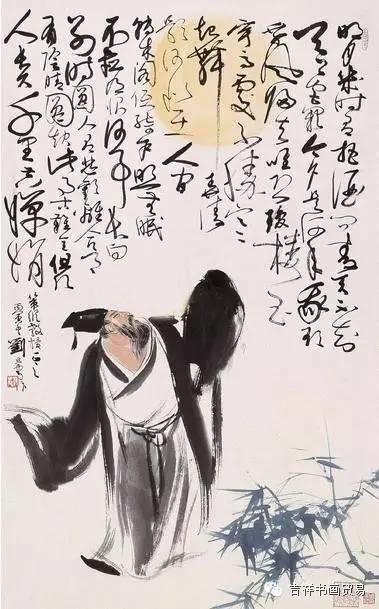 明月幾時有把酒問青天不知
天上宮闕今夕是何年我欲
乘風歸去唯恐瓊樓玉
宇高處不勝寒
起舞弄清
影何似在人間
轉朱閣低綺戶照無眠
不應有恨何事長向
別時圓人有悲歡離合月
有陰晴圓缺此事古難全但願
人長久千里共嬋娟
教授正之
劉旦宅
吉祥书画贸易